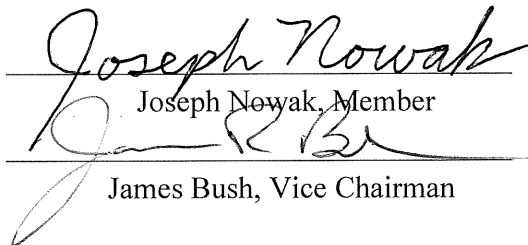 Joseph Nowak
Joseph Nowak, Member
James R B
James Bush, Vice Chairman